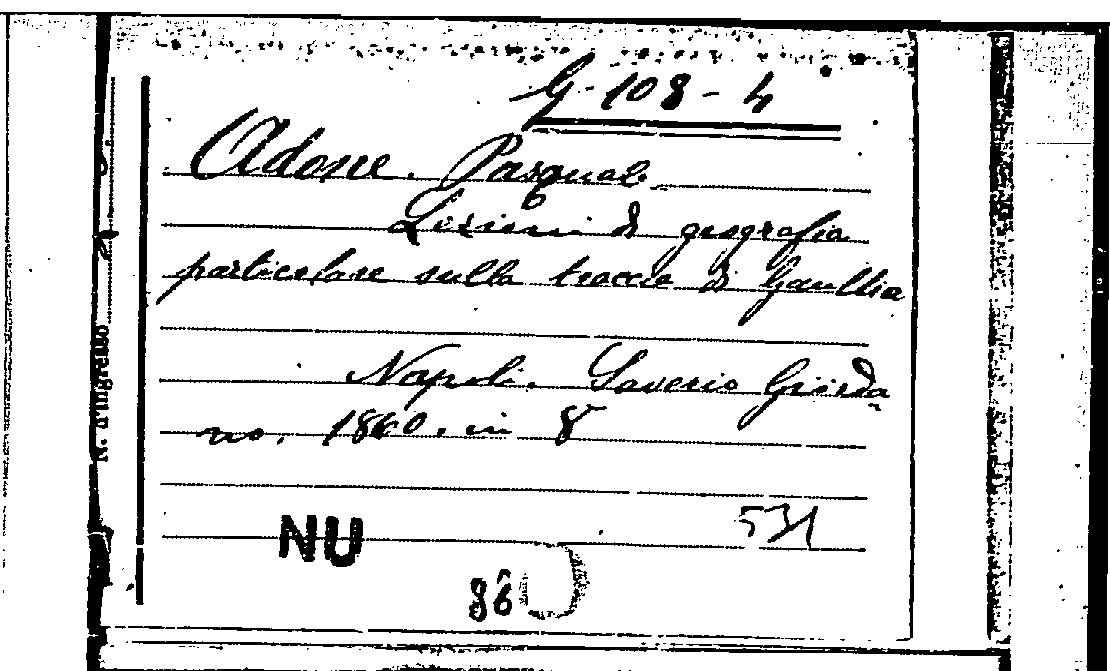 G-108-4
Adone. Pasquale
Lezioni di geografia
particolare sulla traccia di Gaulthia
Napoli. Saverio Giorda
no. 1860. in 8°
531
NU
86
N. d'ingresso